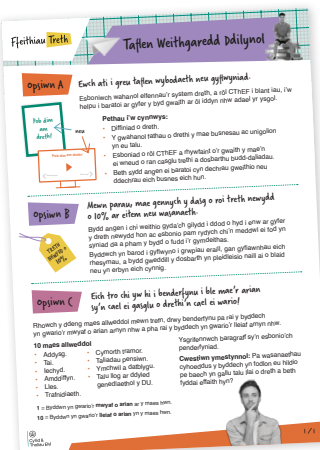 Ffeithiau Treth
Taflen Weithgaredd Ddilynol
Opsiwn A
Ewch ati i greu taflen wybodaeth neu gyflwyniad.
Esboniwch wahanol elfennau'r system dreth, a rôl CThEF i blant iau, i'w
helpu i baratoi ar gyfer y byd gwaith ar ôl iddyn nhw adael yr ysgol.
Pob dim
am
dreth!
neu
Pob dim am dreth!
Pethau i'w cynnwys:
• Diffiniad o dreth.
• Y gwahanol fathau o drethi y mae busnesau ac unigolion
yn eu talu.
• Esboniad o rôl CThEF a rhywfaint o'r gwaith y mae'n
ei wneud o ran casglu trethi a dosbarthu budd-daliadau.
• Beth sydd angen ei baratoi cyn dechrau gweithio neu
ddechrau eich busnes eich hun.
Opsiwn B
Mewn parau, mae gennych y dasg o roi treth newydd
o 10% ar eitem neu wasanaeth.
TRETH
NEWYDD =
10%
Bydd angen i chi weithio gyda'ch gilydd i ddod o hyd i enw ar gyfer
y dreth newydd hon ac esbonio pam rydych chi'n meddwl ei fod yn
syniad da a pham y bydd o fudd i'r gymdeithas.
Byddwch yn barod i gyflwyno i grwpiau eraill, gan gyflawnhau eich
rhesymau, a bydd gweddill y dosbarth yn pleidleisio naill ai o blaid
neu yn erbyn eich cynnig.
Opsiwn C
Eich tro chi yw hi i benderfynu i ble mae'r arian
sy'n cael ei gasglu o drethi'n cael ei wario!
Rhowch y ddeng maes allweddol mewn trefn, drwy benderfynu pa rai y byddech
yn gwario'r mwyaf o arian arnyn nhw a pha rai y byddech yn gwario'r lleiaf arnyn nhw.
10 maes allweddol
• Addysg.
• Tai.
• Iechyd.
• Amddiffyn.
• Lles.
• Trafnidiaeth.
• Cymorth tramor.
• Taliadau pensiwn.
• Ymchwil a datblygu.
• Taiu llog ar ddyled
genedlaethol y DU.
1 = Byddwn yn gwario'r mwyaf o arian ar y maes hwn.
10 = Byddwn yn gwario'r lleiaf o arian yn y maes hwn.
Ysgrifennwch baragraff sy'n esbonio'ch
penderfyniad.
Cwestiwn ymestynnol: Pa wasanaethau
cyhoeddus y byddech yn fodlon eu hildio
pe baech yn gallu talu llai o dreth a beth
fyddai effaith hyn?
Cyllid a
Thollau EF
1 / 1